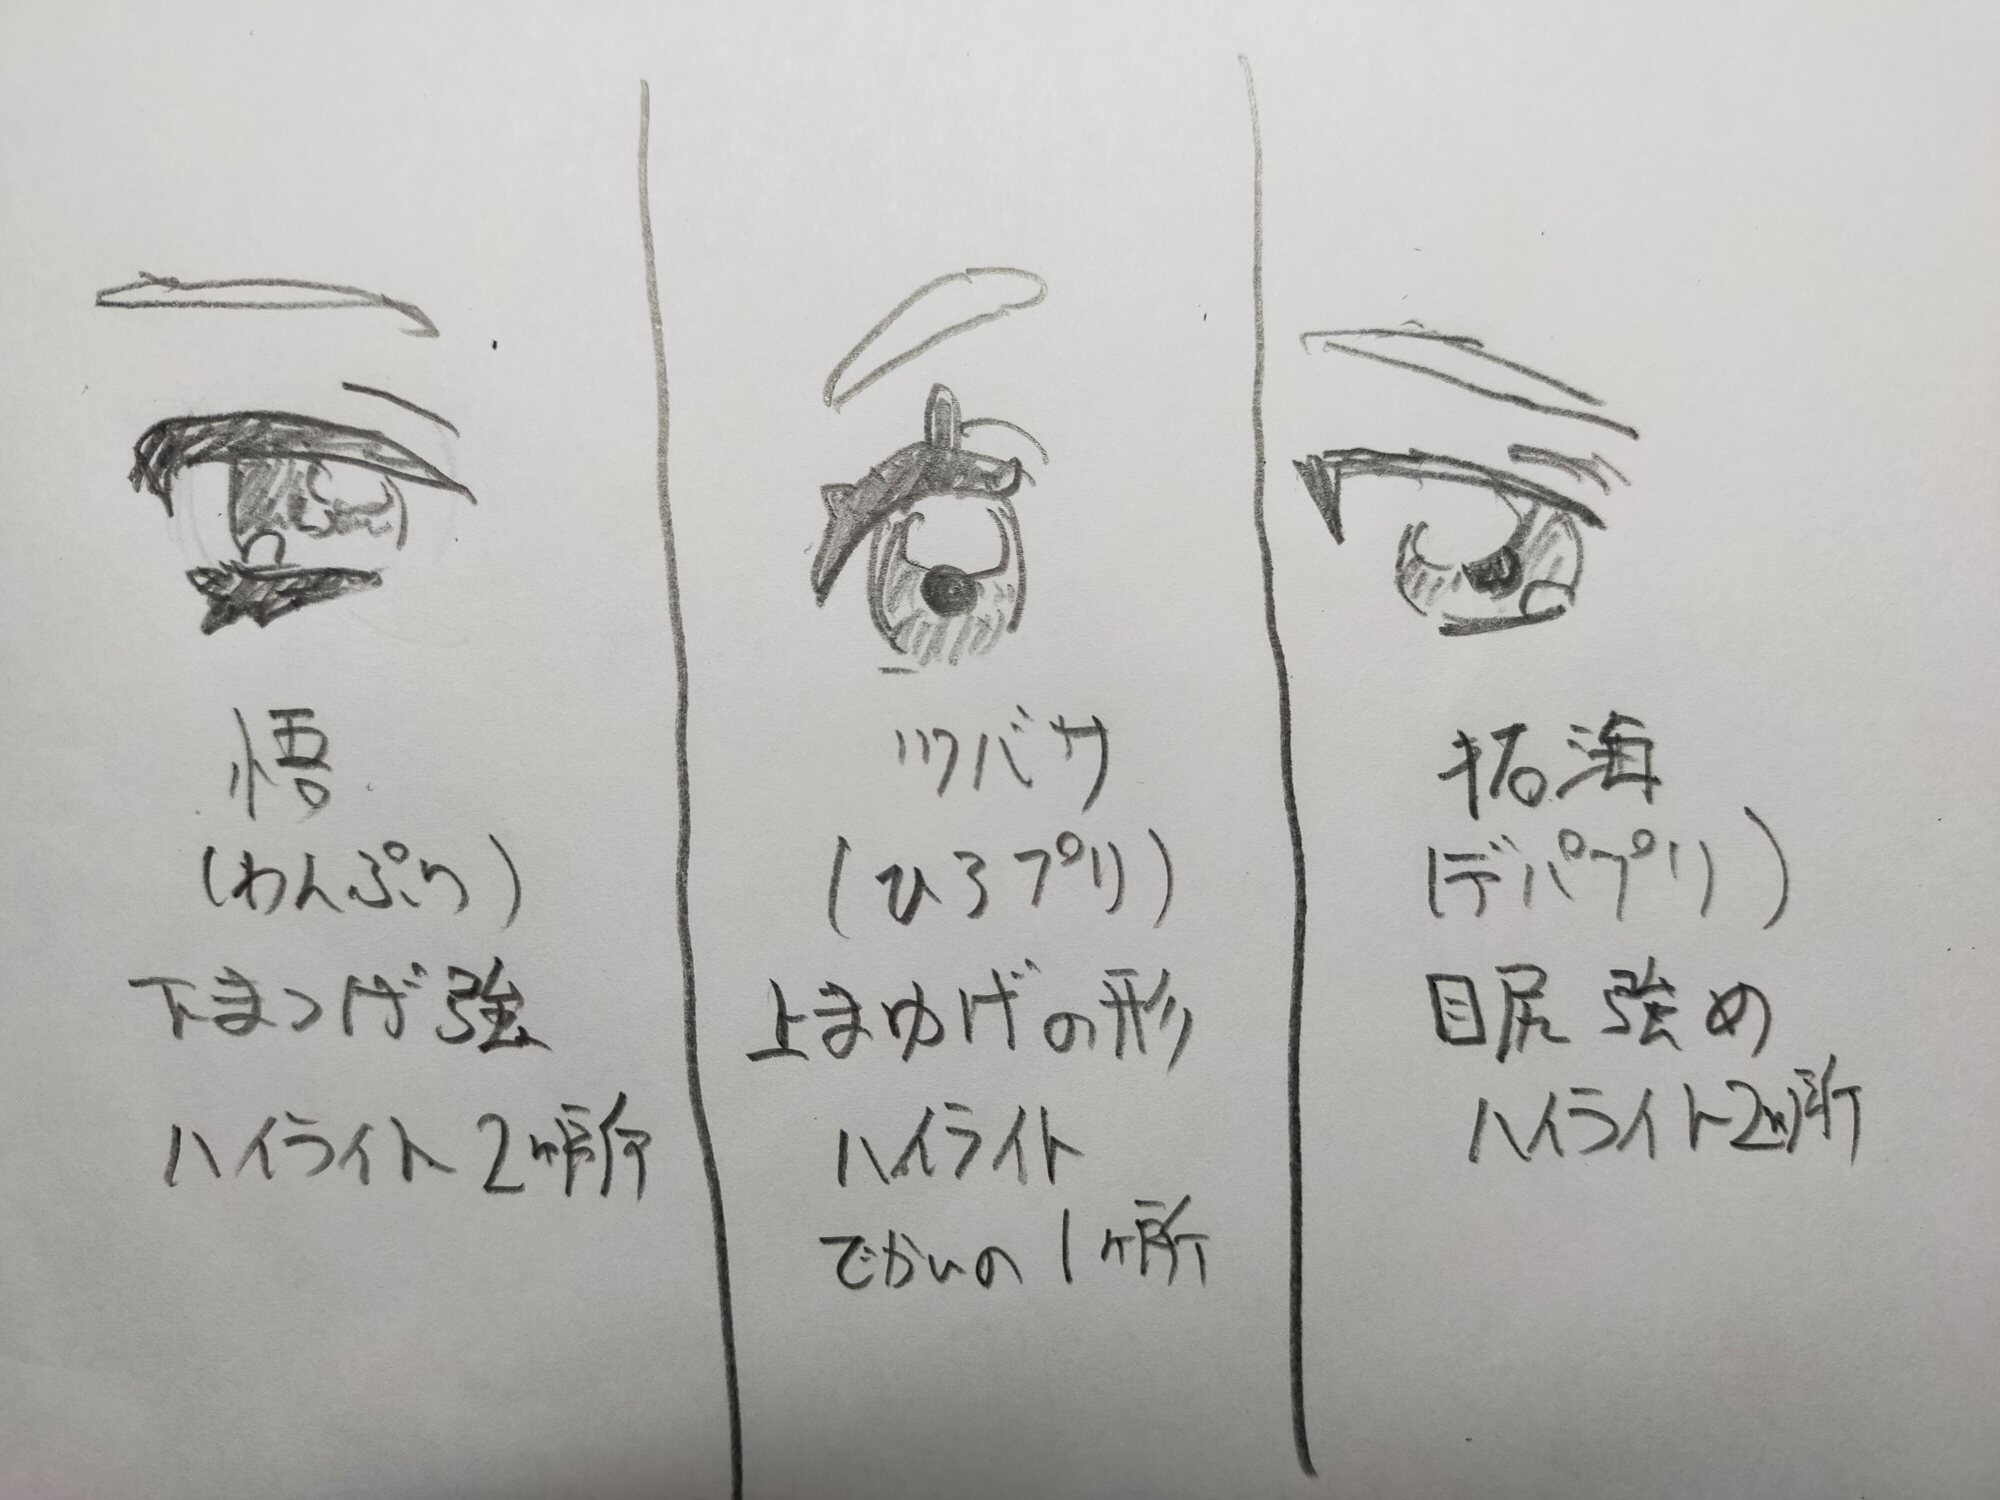 悟
(わんぷり)
下まつげ強
ハイライト2ヶ所
ツバサ
(ひろプリ)
上まゆげの形
ハイライト
でかいの1ヶ所
拓海
(デパプリ)
目尻強め
ハイライト2ヶ所